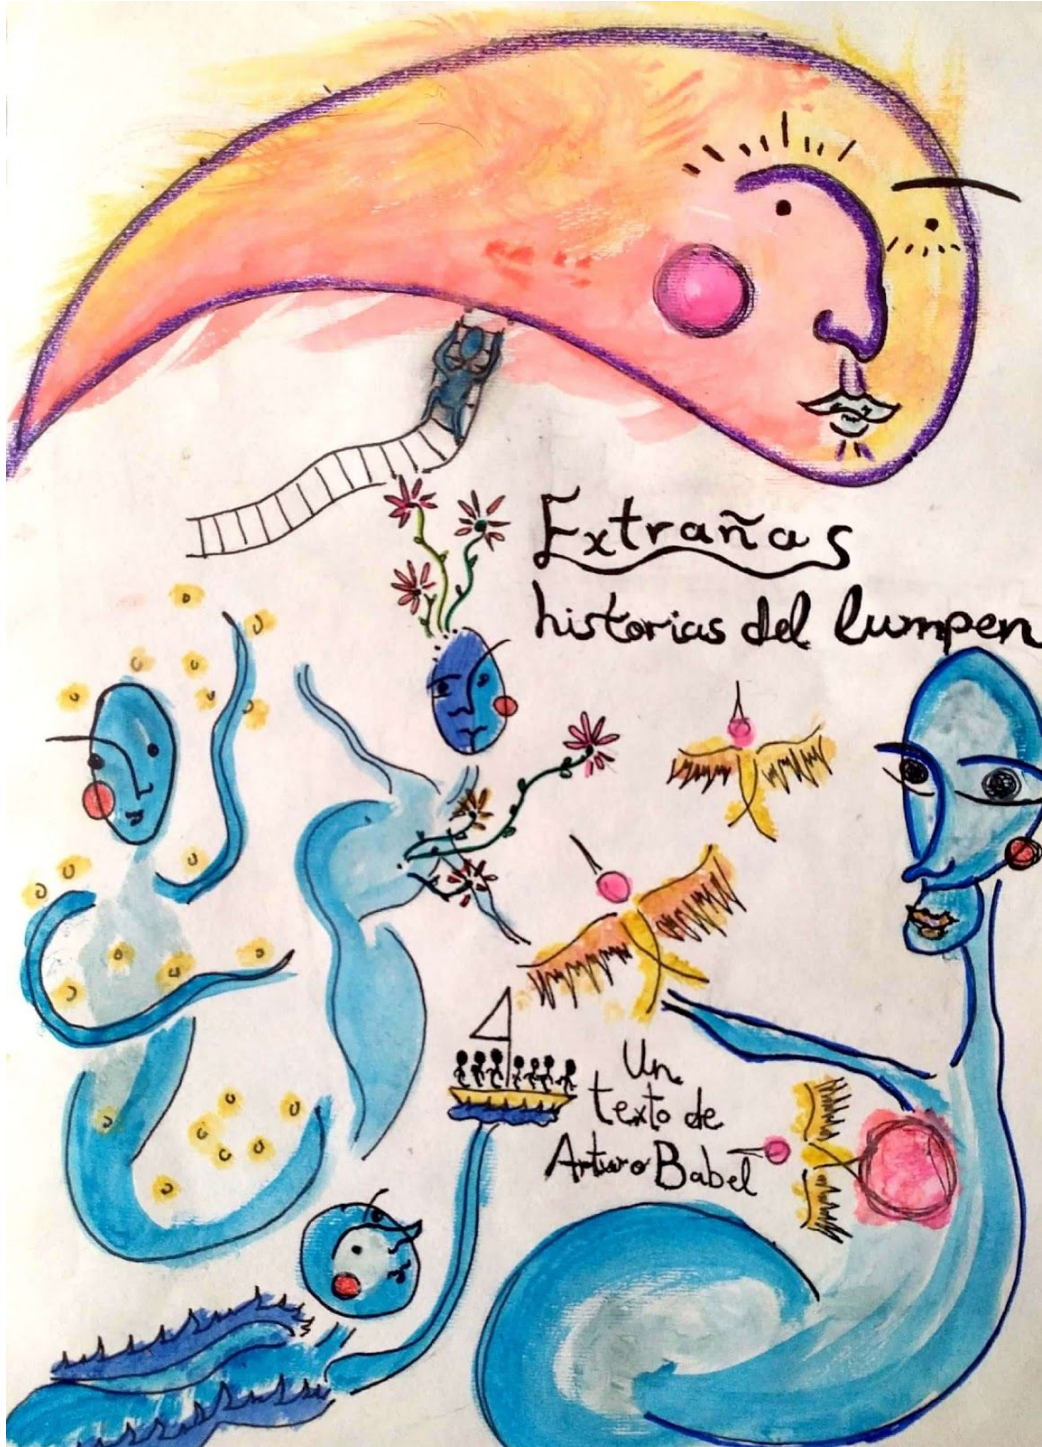 Extrañas
historias del lumpen
Un
texto de
Arturo Babel